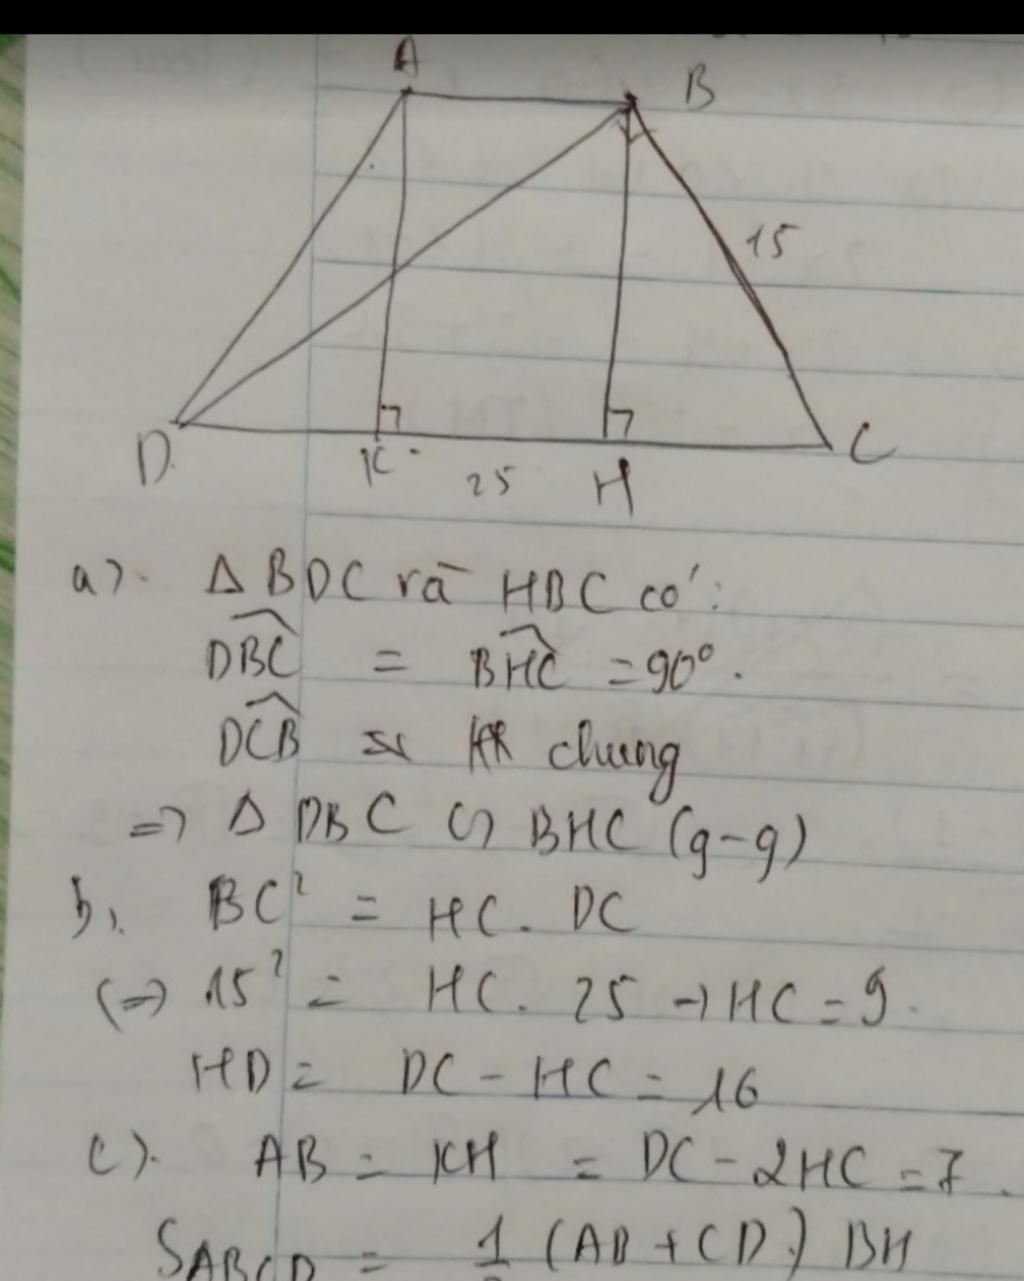 A
B
15
D
K
25
H
C
a). Δ BDC và HBC có:
DBC = BHC = 90°.
DCB chung
=> Δ DBC ∽ BHC (g-g)
b). BC² = HC. DC
(=> 15² = HC. 25 → HC = 9.
HD = DC - HC = 16
c). AB = KH = DC - 2HC = 7.
S ABCD = 1 (AB + CD) BH